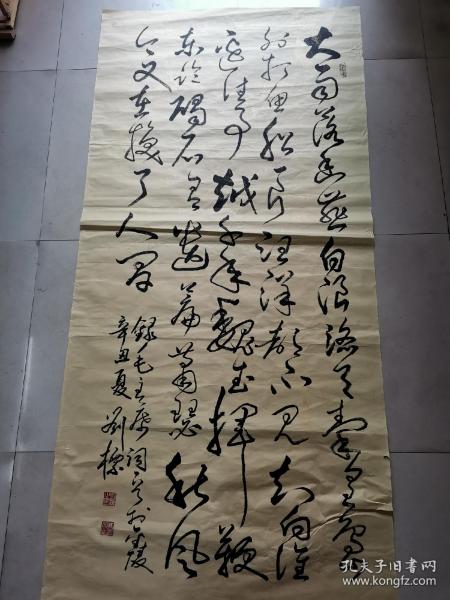 大雨落幽燕白浪滔天秦皇岛
外打鱼船一片汪洋都不见知向谁
边往事越千年魏武挥鞭
东临碣石有遗篇萧瑟秋风
今又是换了人间
錄毛主席词
辛丑夏
孔夫子旧书网
www.kongfz.com